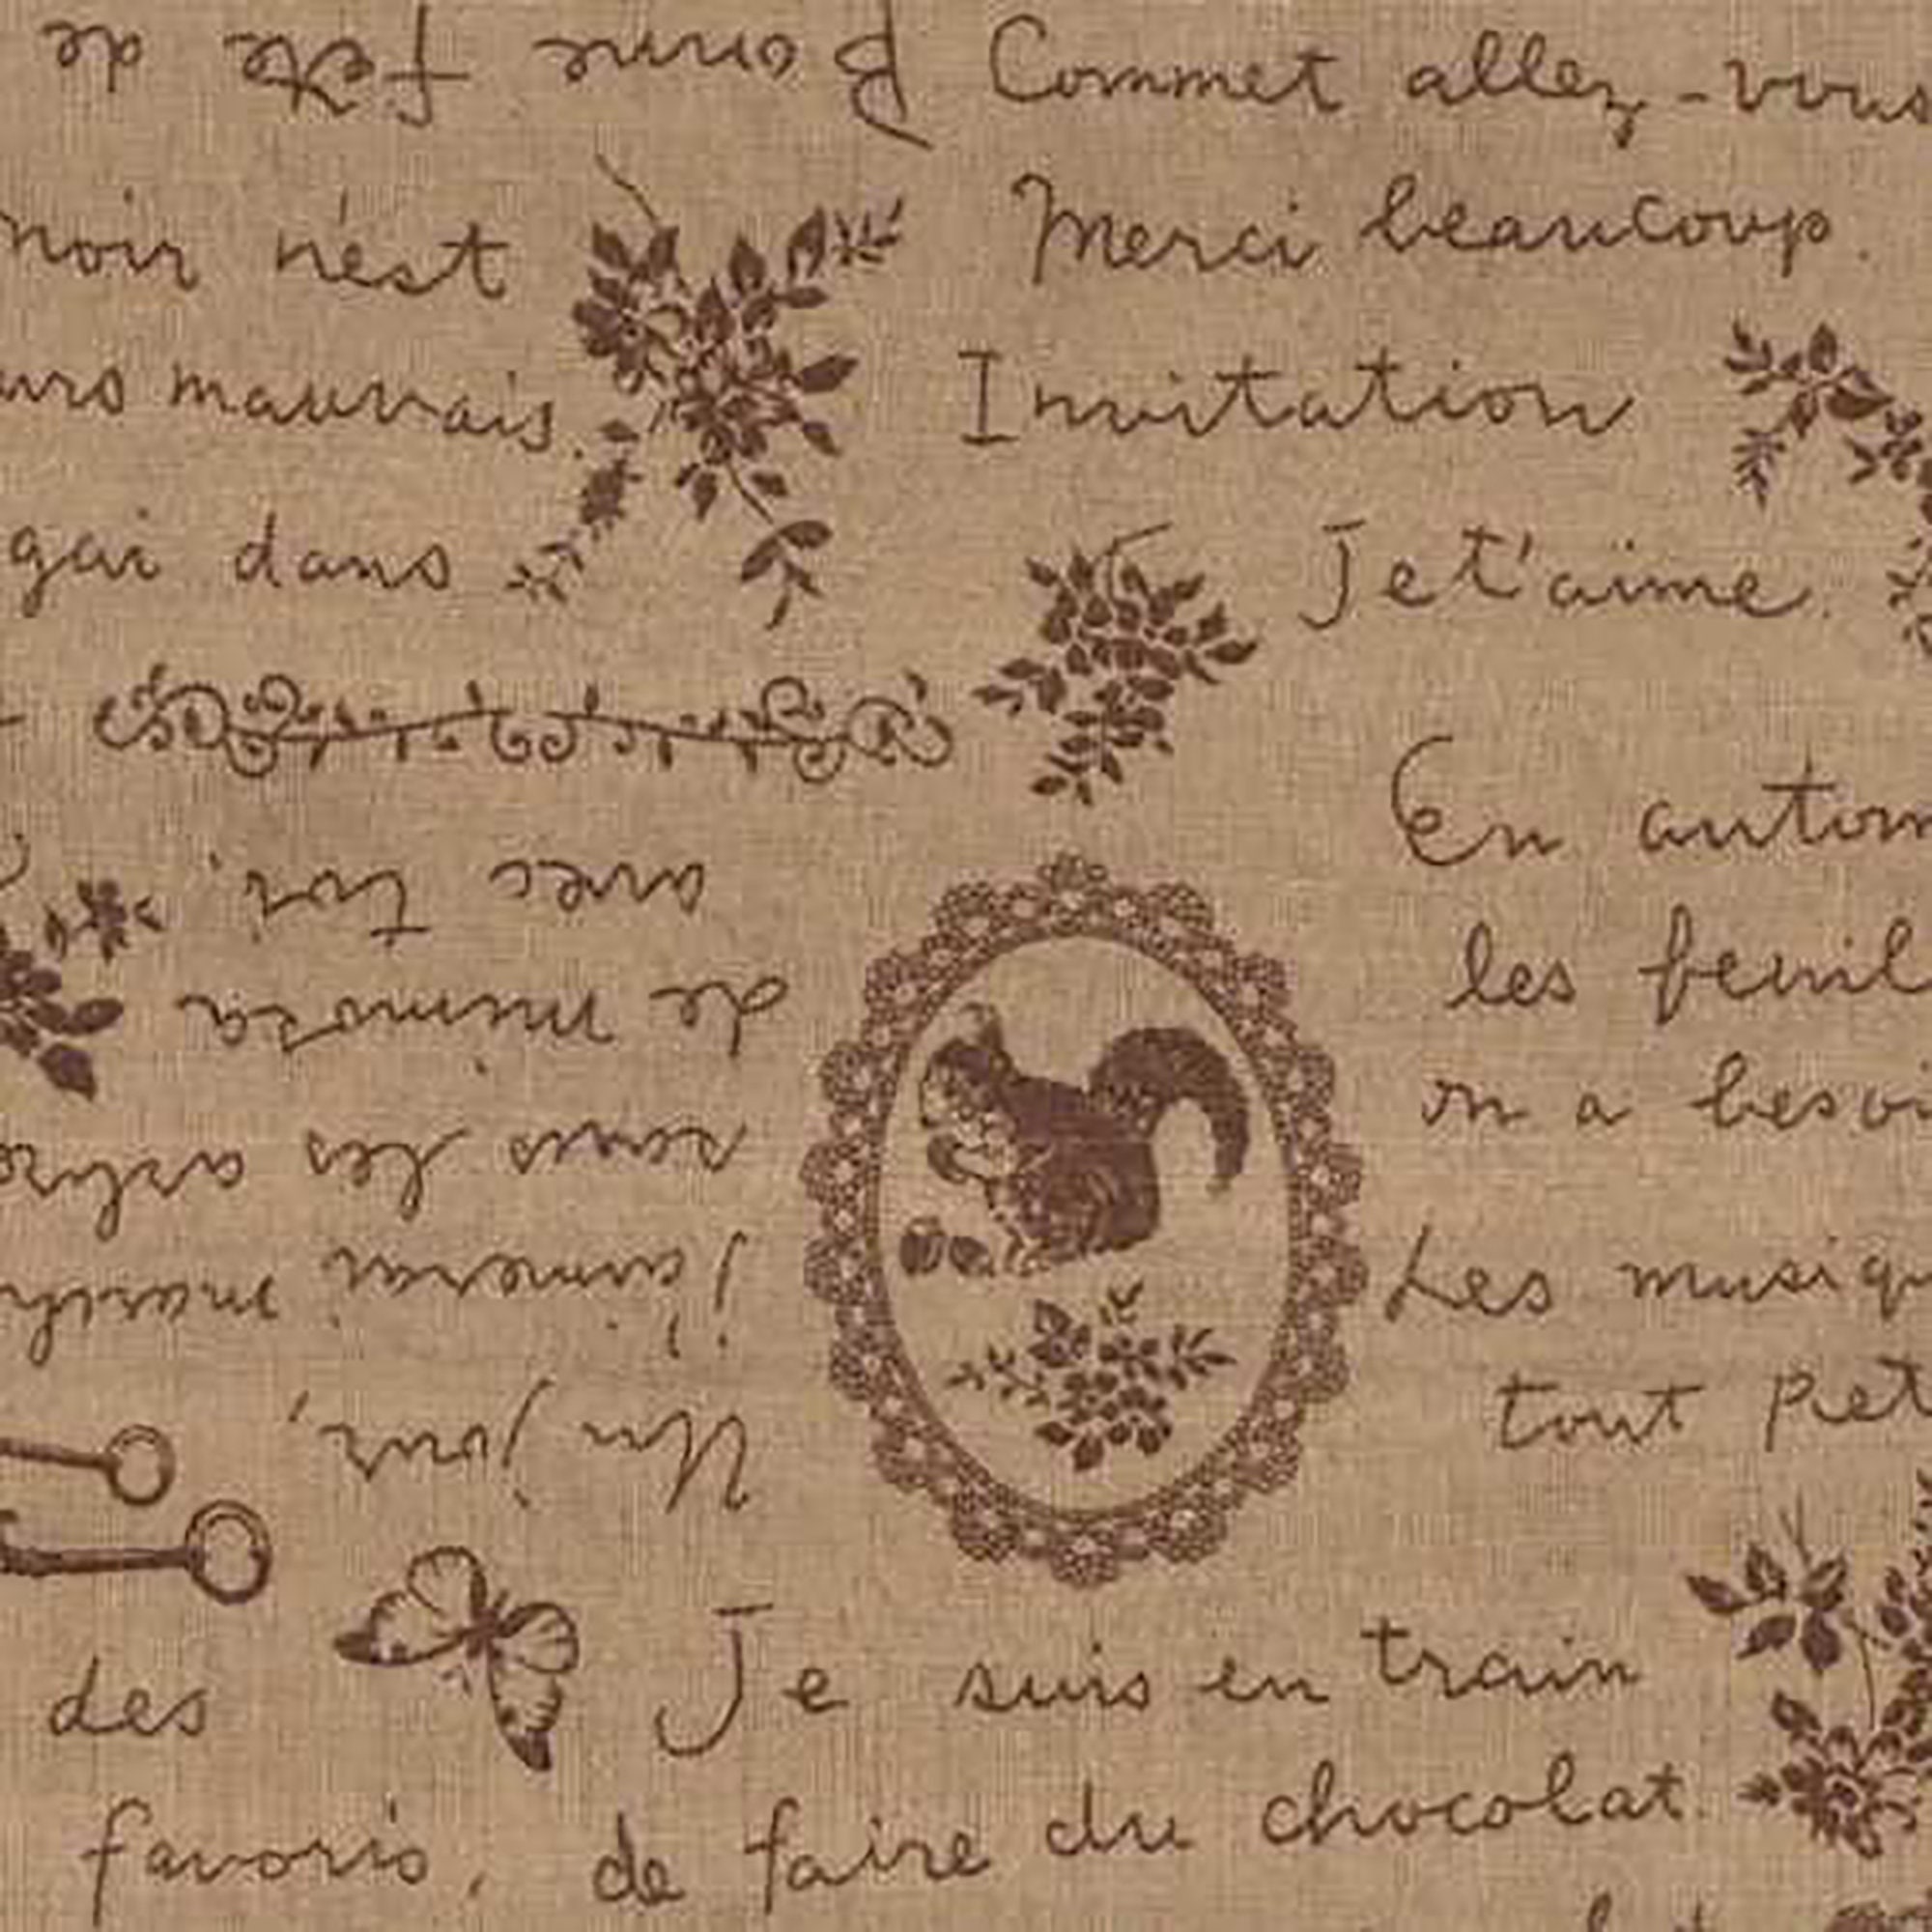 Bonne fête de
Commet allez-vous
noir n'est
Merci beaucoup.
urs mauvais.
Invitation
gai dans
Je t'aime.
En autom
les feuil
on a beso
Les musiqu
tout pet
Un jour,
j'aimerai march
sous les arbre
de mimosa
avec toi.
des
favoris,
Je suis en train
de faire du chocolat.